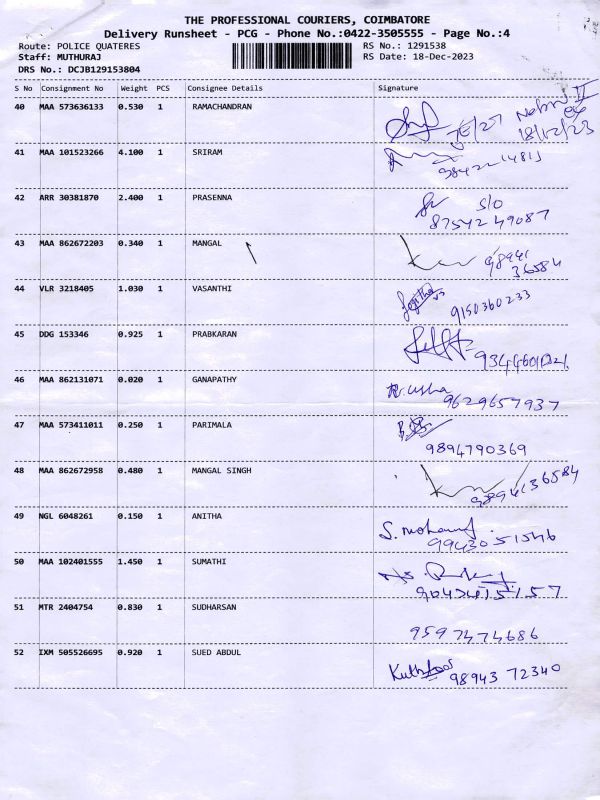 THE PROFESSIONAL COURIERS, COIMBATORE
Delivery Runsheet - PCG - Phone No.:0422-3505555 - Page No.:4
Route: POLICE QUATERES RS No.: 1291538
Staff: MUTHURAJ RS Date: 18-Dec-2023
DRS No.: DCJB129153804
S No Consignment No Weight PCS Consignee Details Signature
40 MAA 573636133 0.530 1 RAMACHANDRAN
18/12/23
41 MAA 101523266 4.100 1 SRIRAM
42 ARR 30381870 2.400 1 PRASENNA S/O
8754249087
43 MAA 862672203 0.340 1 MANGAL
36584
44 VLR 3218405 1.030 1 VASANTHI
9150360233
45 DDG 153346 0.925 1 PRABKARAN
46 MAA 862131071 0.020 1 GANAPATHY
R. usha
9629657937
47 MAA 573411011 0.250 1 PARIMALA
9894790369
48 MAA 862672958 0.480 1 MANGAL SINGH
9894136584
49 NGL 6048261 0.150 1 ANITHA
99430 51546
50 MAA 102401555 1.450 1 SUMATHI
9043415157
51 MTR 2404754 0.830 1 SUDHARSAN
9597474686
52 IXM 505526695 0.920 1 SUED ABDUL
98943 72340